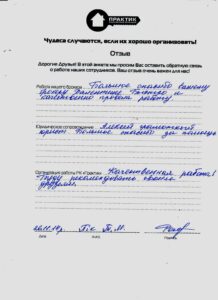 ПРАКТИК
Чудеса случаются, если их хорошо организовать!
Отзыв
Дорогие Друзья! В этой анкете мы просим Вас оставить обратную связь
о работе наших сотрудников. Ваш отзыв очень важен для нас!
Работа вашего брокера Большое спасибо вашему
брокеру Валентине. Быстро и
качественно провела работу.
Юридическое сопровождение Алексей грамотный
юрист Большое спасибо за помощь
Организация работы РК «Практик» Качественная работа!
Буду рекомендовать своим
друзьям.
дата
ФИО
Подпись